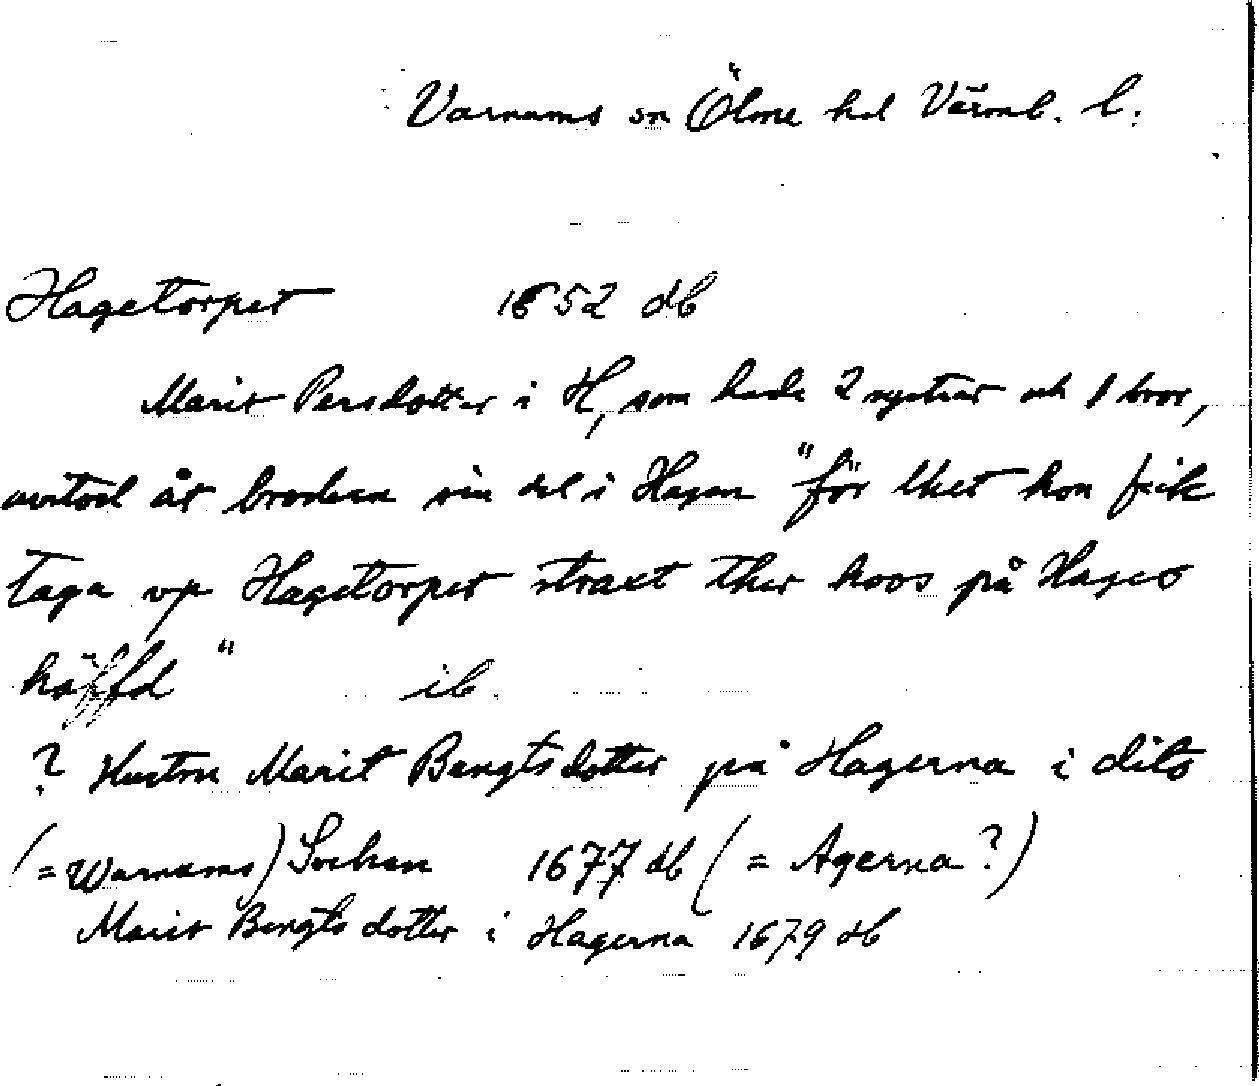 Varnums sn Ölme hd Värml. l.
Hagetorpet 1652 db
Marit Persdotter i H, som hade 2 systrar och 1 bror,
avstod åt brodren sin del i Hagen "för thet hon feik
taga vp Hagetorpet straxt ther hoos på Hages
häffd" ib.
? Hustru Marit Bengtsdotter på Hagerna i dito
(= Warnums) Sochen 1677 db (= Agerna?)
Marit Bengts dotter i Hagerna 1679 db